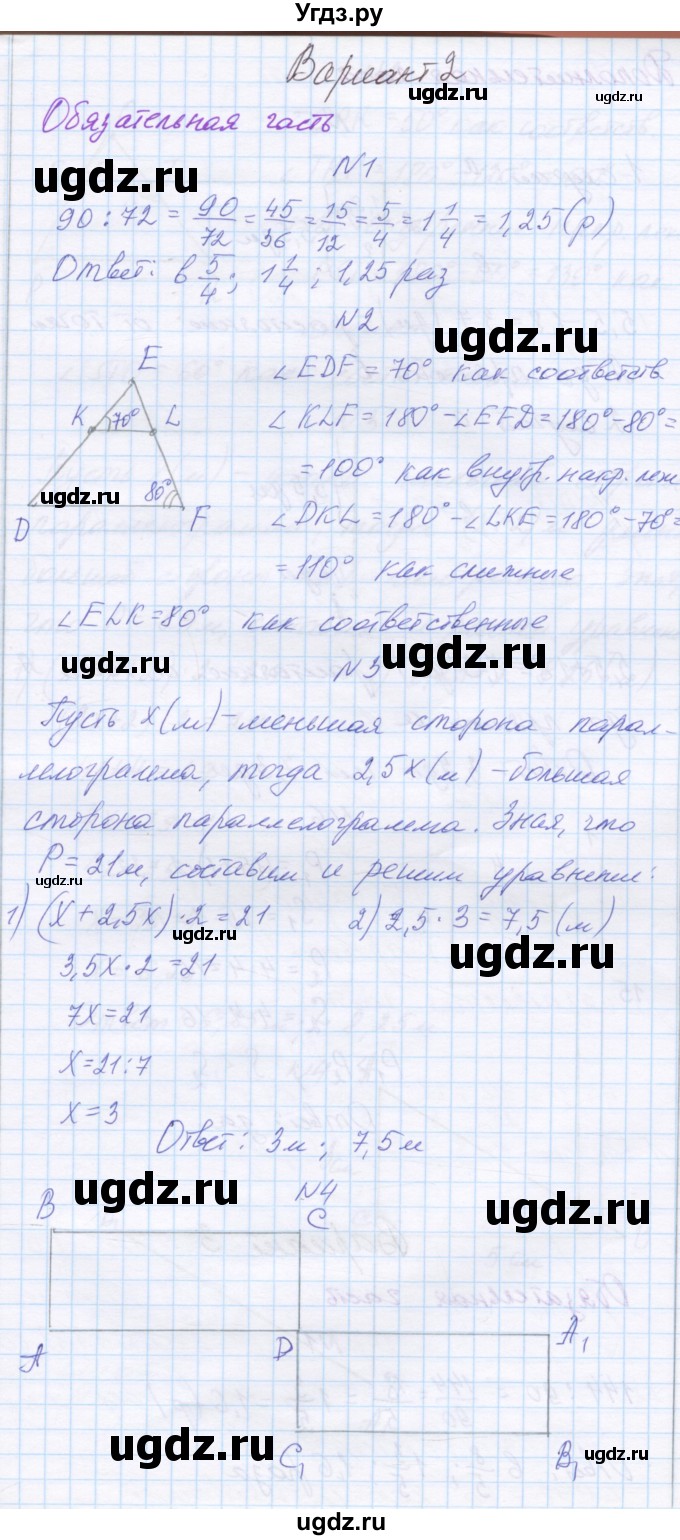 Угдз.ру
Вариант 2
ugdz.ru
Обязательная часть
ugdz.ru
N1
90 : 72 = 90/72 = 45/36 = 15/12 = 5/4 = 1 1/4 = 1,25 (р)
Ответ: в 5/4; 1 1/4; 1,25 раз
ugdz.ru
N2
E
K 70° L
80°
D F
ugdz.ru
∠EDF = 70° как соответств
∠KLF = 180° - ∠EFD = 180° - 80° =
= 100° как внутр. накр. леж
∠DKL = 180° - ∠LKE = 180° - 70° =
= 110° как смежные
∠ELK = 80° как соответственные
ugdz.ru
ugdz.ru
N3
Пусть x(м) - меньшая сторона парал-
лелограмма, тогда 2,5x(м) - большая
сторона параллелограмма. Зная, что
P = 21м, составим и решим уравнение:
ugdz.ru
1) (x + 2,5x) · 2 = 21 2) 2,5 · 3 = 7,5 (м)
ugdz.ru
ugdz.ru
3,5x · 2 = 21
7x = 21
x = 21 : 7
x = 3
Ответ: 3м; 7,5м
ugdz.ru
N4
ugdz.ru
B C
A D A₁
C₁ B₁
ugdz.ru
ugdz.ru
ugdz.ru